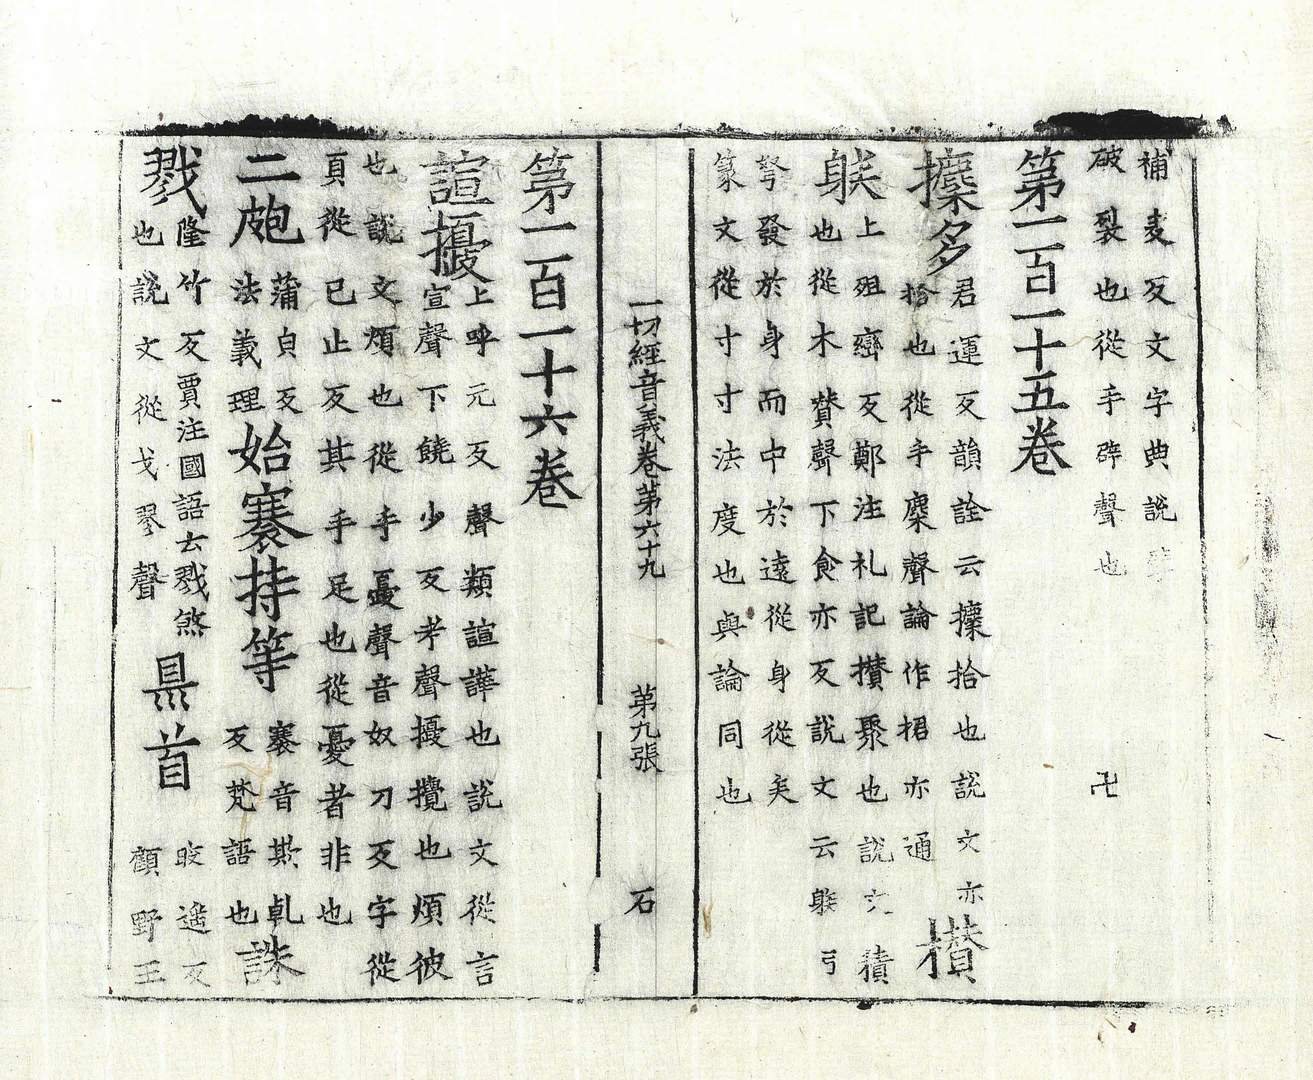 補麦反文字典說
破裂也從手辟聲也 卍
第一百一十五卷
攈多
君運反韻詮云攈拾也說文亦
拾也從手麇聲論作捃亦通
攢
躲
上徂巒反鄭注礼記攢聚也說文積
也從木贊聲下食亦反說文云躲弓
弩發於身而中於遠從身從矢
篆文從寸寸法度也與論同也
一切經音義卷第六十九 第九張 石
第一百一十六卷
諠擾
上呼元反聲類諠譁也說文從言
宣聲下饒少反考聲擾攪也煩彼
也說文煩也從手夒聲音奴刀反字從
頁從巳止反其手足也從憂者非也
二皰
蒲皃反
法義理
始騫持等
騫音欺乹
反梵語也
誅
戮
隆竹反賈注國語云戮煞
也說文從戈翏聲
県首
晈遥反
顧野王